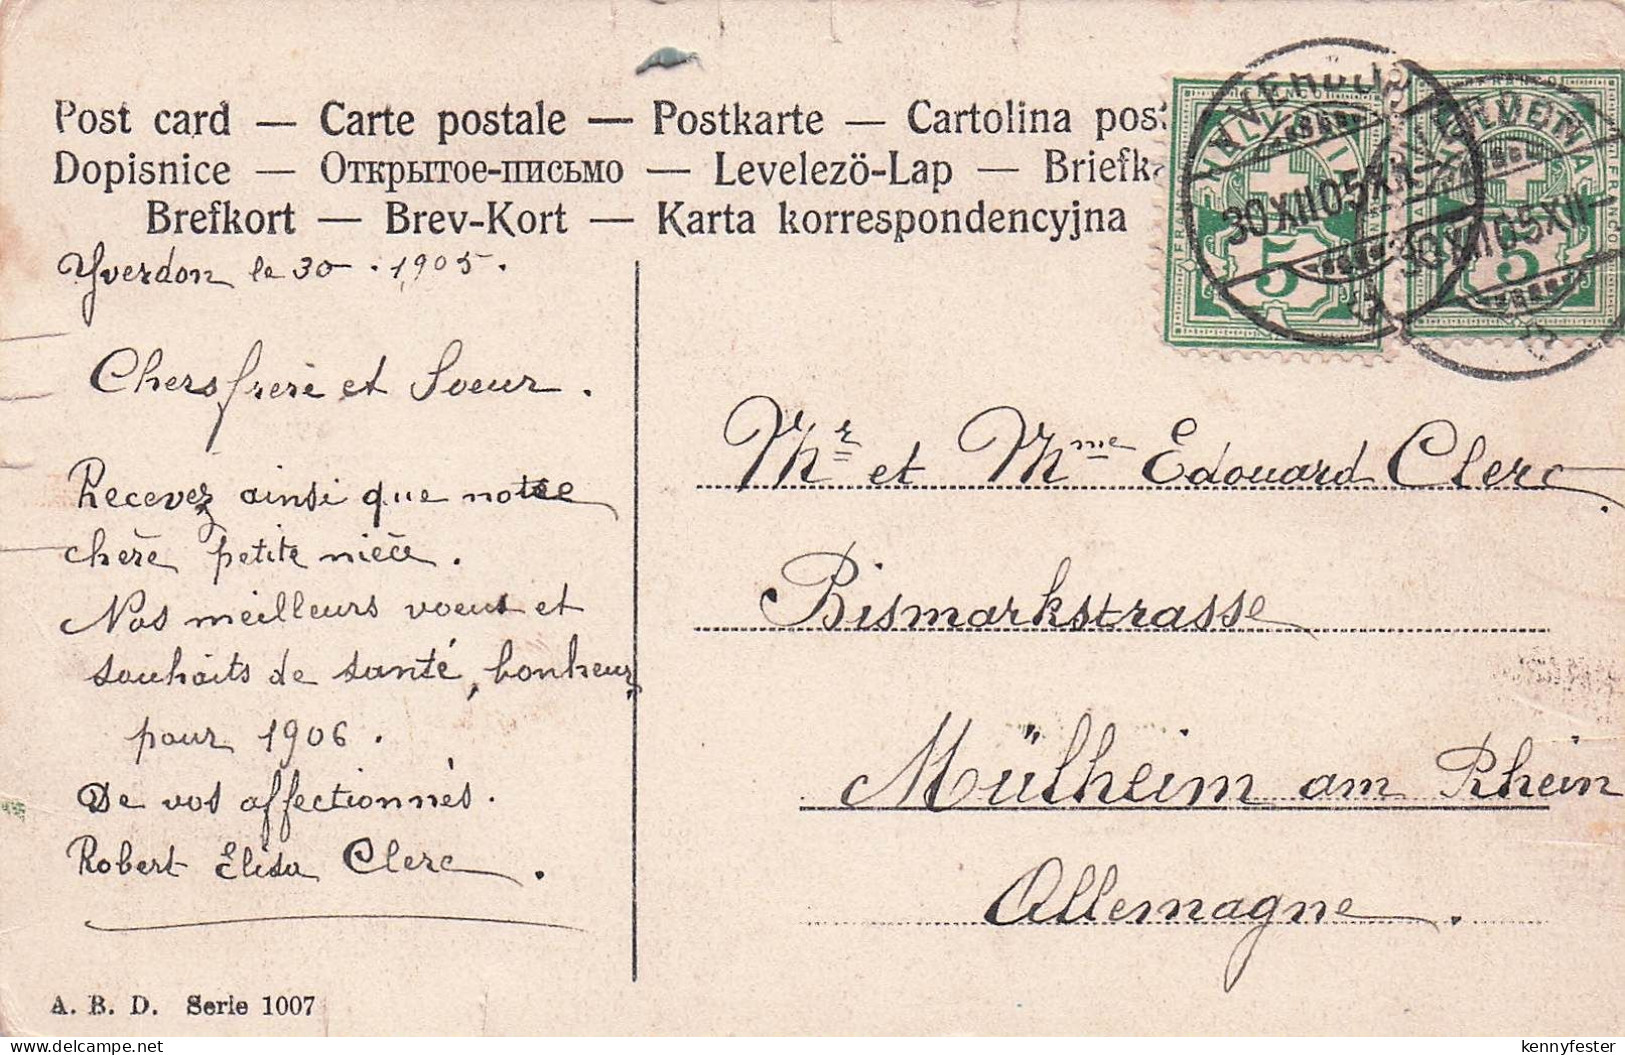 Post card — Carte postale — Postkarte — Cartolina post
Dopisnice — Открытое-письмо — Levelezö-Lap — Briefk
Brefkort — Brev-Kort — Karta korrespondencyjna
Yverdon le 30 - . 1905.
Chers frère et Soeur.
Recevez ainsi que notre
chère petite nièce.
Nos meilleurs voeux et
souhaits de santé, bonheur,
pour 1906.
De vos affectionnés.
Robert Elisa Clerc.
A. B. D. Serie 1007
HELVETIA
5
FRANCO
YVERDON
30 XII 05 XII-
5
FRANCO
YVERDON
30 XII 05 XII-
Mr et Mme Edouard Clerc.
Bismarkstrasse
Mülheim am Rhein
Allemagne.
kennyfester